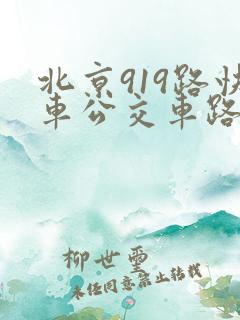 北京919路快
车公交车路
柳世玺
未经同意禁止转载